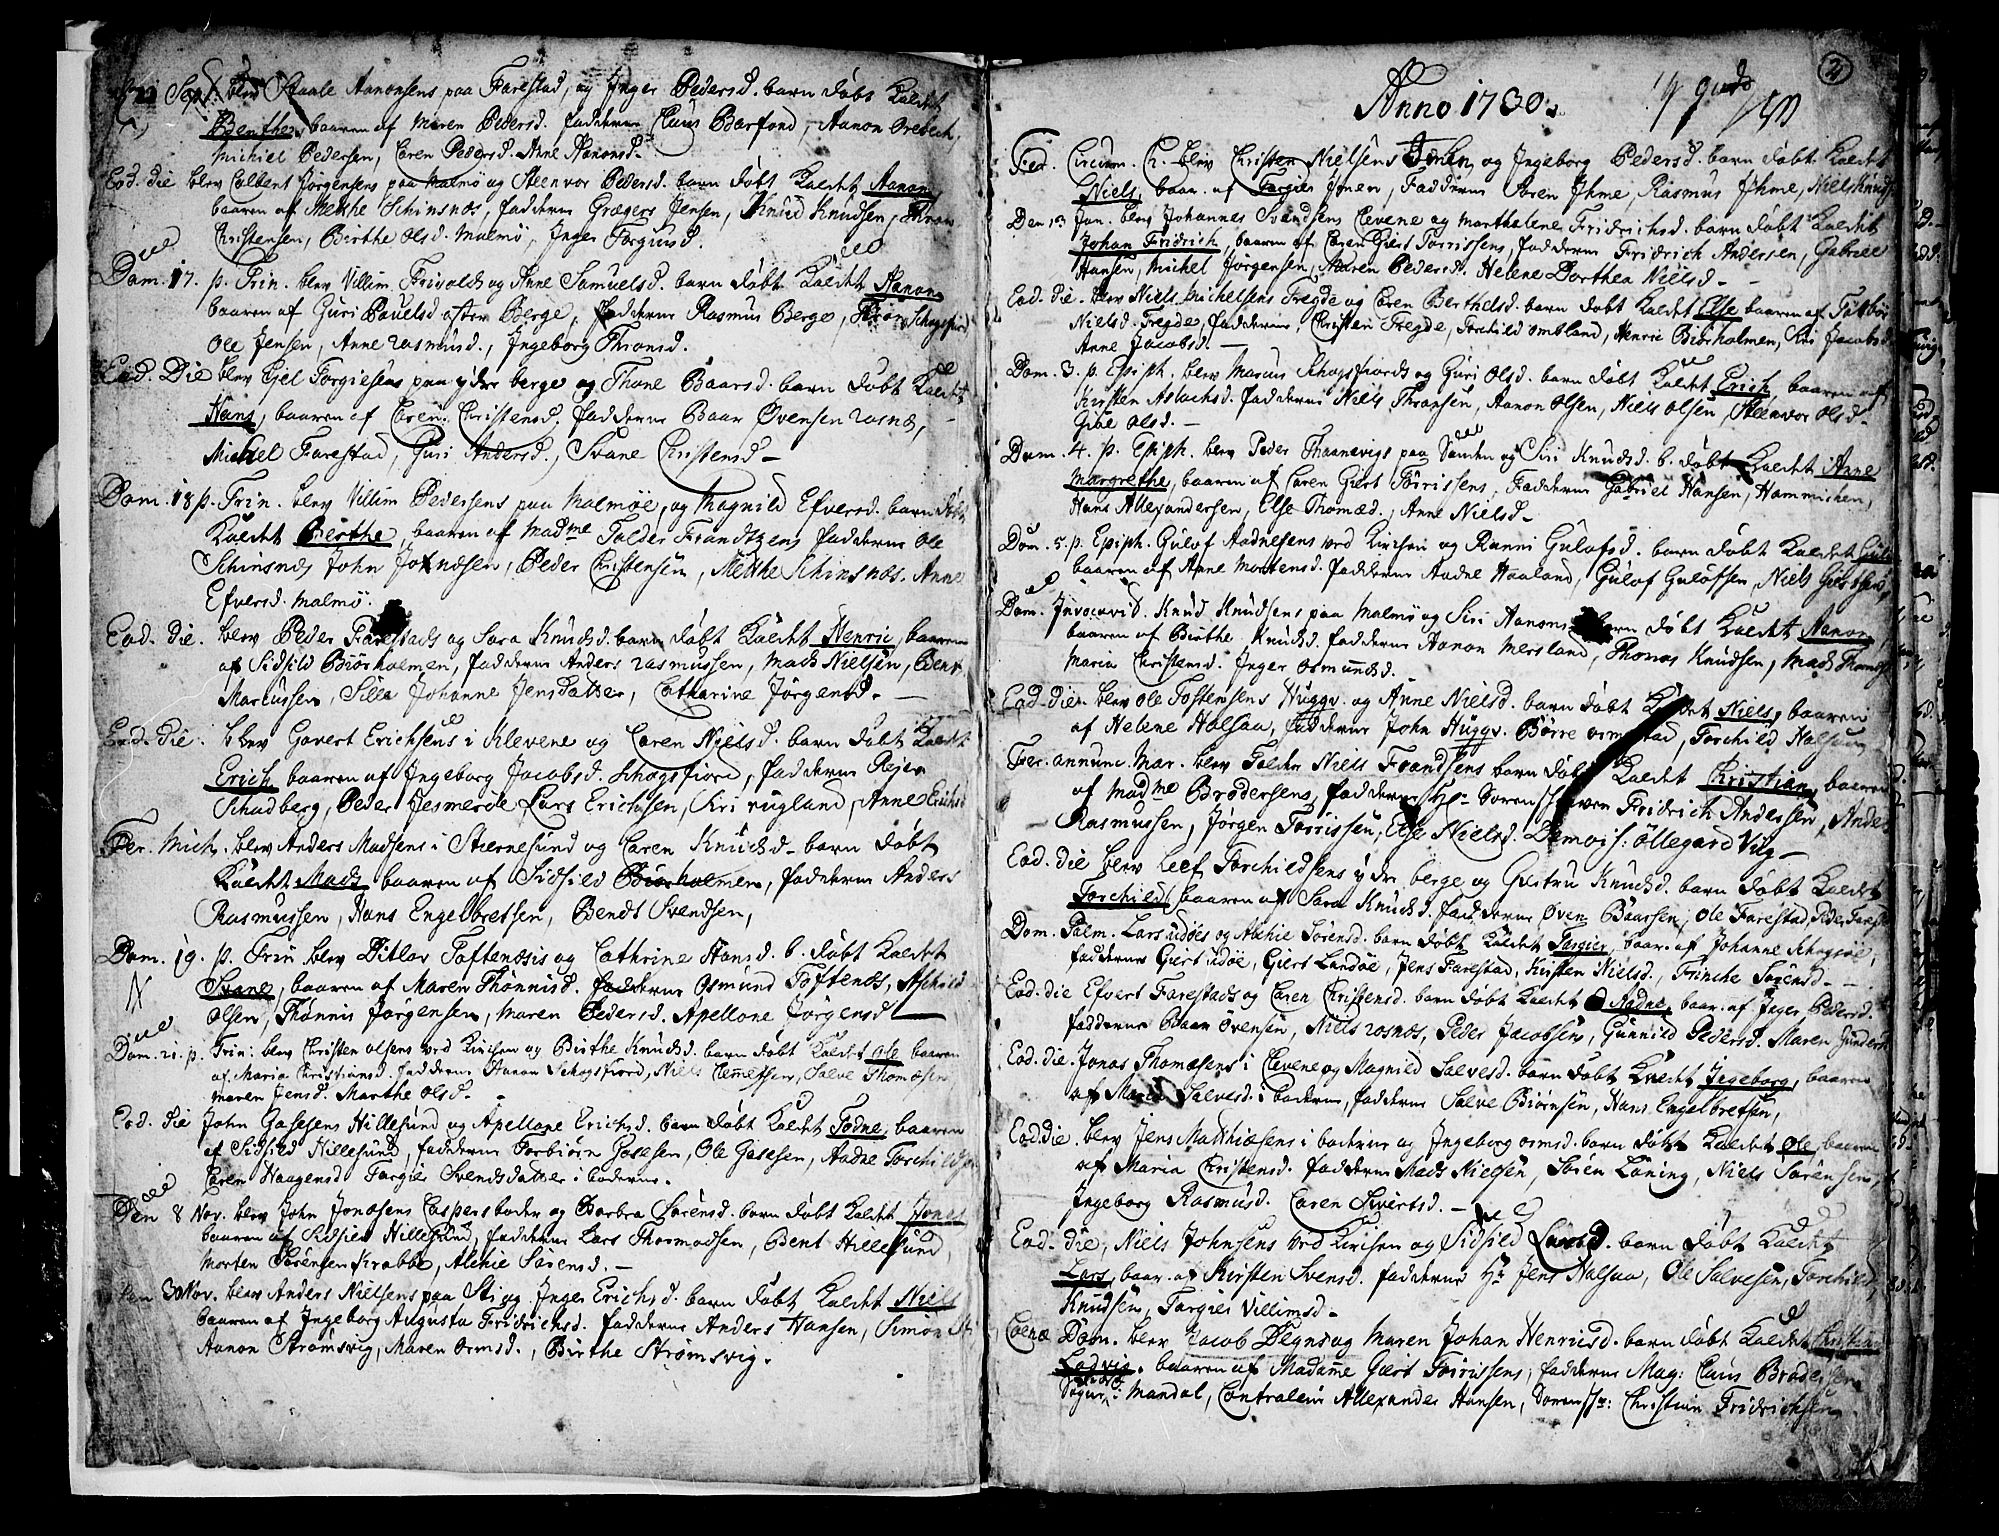 Sept. blev Staale Aanonsens paa Farestad, og Inger Pedersd. barn døbt Kaldet
Berthe, baaren af Maren Pedersd. fadderne Claus Barfond, Aanon Orebech,
Michiel Pedersen, Caren Pedersd. Anne Aanonsd.
Eod. die blev Colbent Jørgensens paa Malmø og Steenvor Pedersd. barn døbt Kaldet Aanon,
baaren af Mette Schinsnæs, fadderne Grægers Jensen, Knud Knudsen,
Christensen, Birthe Olsd. Malmø, Inger Torgiusd.
Dom. 17. p. Trin. blev Villum Frigolds og Anne Samuelsd. barn døbt Kaldet Aanon
baaren af Guri Pouelsd. Berge, fadderne Rasmus Berge, Schogsfiord
Ole Jensen, Anne Rasmusd., Ingeborg Thronsd.
Eod. Die blev Giel Torgiesens paa ydre berge og Thone Baarsd. barn døbt Kaldet
Hans, baaren af Caren Christensd. fadderne Baar Øvensen Rosnæs,
Michel Farestad, Guri Andersd., Svane Christensd.
Dom. 18 p. Trin. blev Villum Pedersens paa Malmøe, og Magnild Efversd. barn døbt
Kaldet Berthe, baaren af Madme Tolder Frandtzens fadderne Ole
Schinsnæs, John Jonæsen, Peder Christensen, Mette Schinsnæs, Anne
Efversd. Malmø.
Eod. die. blev Peder Farestads og Sara Knudsd. barn døbt Kaldet Henric, baaren
af Sidsild Biørholmen, fadderne Anders Rasmussen, Mads Nielsen, Bent
Marcussen, Sille Johanne Jensdatter, Catharine Jørgensd.
Eod. die. blev Govert Erichsens i Klevene og Caren Nielsd. barn døbt Kaldet
Erich, baaren af Ingeborg Jacobsd. Schogsfiord, fadderne Rejer
Schadberg, Peder Jesmerøe, Lars Erichsen, Siri Rugland, Anne Erichsd
Fer. Mich. blev Anders Madsens i Stiernesund og Caren Knudsd. barn døbt
Kaldet Mads, baaren af Sidsild Biørholmen, fadderne Anders
Rasmussen, Hans Engelbretsen, Bendt Svendsen,
Dom. 19. p. Trin blev Ditlov Toftenæsis og Cathrine Hansd. b. døbt Kaldet
Svane, baaren af Maren Thønnisd. fadderne Osmund Toftenæs,
Olsen, Thønnis Jørgensen, Maren Pedersd. Apellone Jørgensd.
Dom. 21. p. Trin: blev Christen Olsens ved Kirchen og Birthe Knudsd. barn døbt Kaldet Ole baaren
af Maria Christiansd. fadderne Aanon Schogsfiord, Niels Clemetsen, Salve Thomæsen,
Maren Jensd. Marthe Olsd.
Eod. die John Gossesens Hillesund og Apellone Erichsd. barn døbt Kaldet Todne, baaren
af Sidsild Hillesund, fadderne Torbiørn Gosesen, Ole Gosesen, Aadne Torchilds
Caren Haagensd Torgier Svendsdatter i baderne.
Den 8 Nov. blev John Jonæsens Caspersboder og Barbra Sørensd. barn døbt Kaldet Jonas
baaren af Sidsild Hillesund, fadderne Lars Thormodsen, Bent Hillesund,
Morten Sørensen Krabbe, Alchie Sørensd.
Den 30 Nov. blev Anders Nielsens paa Sti og Inger Erichsd. barn døbt Kaldet Niels
baaren af Ingeborg Augusta Fridrichsd. fadderne Anders Hansen, Simon
Aanon Strømsvig, Maren Ormsd., Birthe Strømsvig.
2
Anno 1730.
Fer. Circum. Ch. blev Christen Nielsens og Ingeborg Pedersd. barn døbt Kaldet
Niels, baar. af Torgier Ihmen, Fadderne Søren Ihme, Rasmus Ihme, Niels Knuds
Den 13 Jan. blev Johannes Svendsens Clevene og Marthalene Fridrichsd. barn døbt Kaldet
Johan Fridrich, baaren af Caren Giert Torrissens, fadderne Fridrich Andersen, Gabriel
Hansen, Michel Jørgensen, Maren Pedersd. Helene Dorthea Nielsd.
Eod. die. blev Niels Michelsens Tregde og Caren Berthelsd. barn døbt Kaldet Else baaren af
Nielsd. Tregde, fadderne, Christen Tregde, Torchild Omland, Henric Biørholmen, Siri Jacobsd
Anne Jacobsd.
Dom. 3. p. Epiph. blev Marcus Schogsfiords og Guri Olsd. barn døbt Kaldet Erich, baaren af
Kirsten Aslachsd. fadderne Niels Thronsen, Aanon Olsen, Niels Olsen, Steenvor Olsd.
Give Olsd.
Dom. 4. p. Epiph. blev Peder Thaanevigs paa Sanden og Siri Knudsd. b. døbt Kaldet Anne
Margrethe, baaren af Caren Giert Torrissens, Fadderne Gabriel Hansen, Hammichen,
Hans Allexandersen, Else Thomæd., Anne Nielsd.
Dom. 5. p. Epiph. Gulof Aadnesens ved Kirchen og Ranni Gulofsd. barn døbt Kaldet
baaren af Anne Mortensd. fadderne Aadne Haaland, Gulof Gulofsen, Niels
Dom. Invocavid. Knud Knudsens paa Malmø og Siri Aanons barn døbt Kaldet Aanon,
baaren af Birthe Knudsd. fadderne Aanon Mersland, Thomas Knudsen, Mads
Maria Christensd. Inger Osmundsd.
Eod. die. blev Ole Tostensens Huggv. og Anne Nielsd. barn døbt Kaldet Niels, baaren
af Helene Halsaa, fadderne John Huggv. Børre Ormestad, Torchild Halsaa
Fer. annunc. Mar. blev Tolder Niels Frandsens barn døbt Kaldet Christian, baaren
af Madme Brodersens, fadderne Hr Soren Fridrich Andersen, Anders
Rasmussen, Jørgen Torrissen, Else Nielsd. Demois: Øllegard Vilg
Eod. die blev Leef Torchildsens ydre berge og Giertru Knudsd. barn døbt Kaldet
Torchild, baaren af Sara Knudsd. fadderne Øven Baarsen, Ole Farestad, Peder
Dom. Palm. Lars Udøes og Alchie Sørensd. barn døbt Kaldet Torgier, baar. af Johanne Schogsøe,
fadderne Giert Udøe, Giert Landøe, Jens Farestad, Kirsten Nielsd., Trinche Sørensd.
Eod. die Efvert Farestads og Caren Christensd. barn døbt Kaldet Aadne, baar. af Inger Pedersd.
fadderne Baar Øvensen, Niels Rosnæs, Peder Jacobsen, Gunnild Pedersd. Maren
Eod. die. Jonas Thomæsens i Clevene og Magnild Salvesd. barn døbt Kaldet Ingeborg, baaren
af Maria Salvesd. i baderne, fadderne Salve Biørnsen, Hans Engelbretsen,
Eod. die. blev Jens Matthiæsens i baderne og Ingeborg Ormsd. barn døbt Kaldet Ole, baaren
af Maria Christensd. fadderne Mads Nielsen, Søren Løning, Niels Sørensen,
Ingeborg Rasmusd. Caren Sivertsd.
Eod. die, Niels Johnsens ved Kirchen og Sidsild Larsd. barn døbt Kaldet
Lars, baar. af Kirsten Svensd. fadderne Hr Jens Halsaa, Ole Salvesen, Torchild
Knudsen, Torgier Villumsd.
Coenæ Dom. blev Jacob Degns og Maren Johan Henrichsd. barn døbt Kaldet Christian
Lodvig. baaren af Madame Giert Torrissens, fadderne Mag: Claus Brodersen
Mandal, Contraleur Allexander Hansen, Christian Fridrichsen